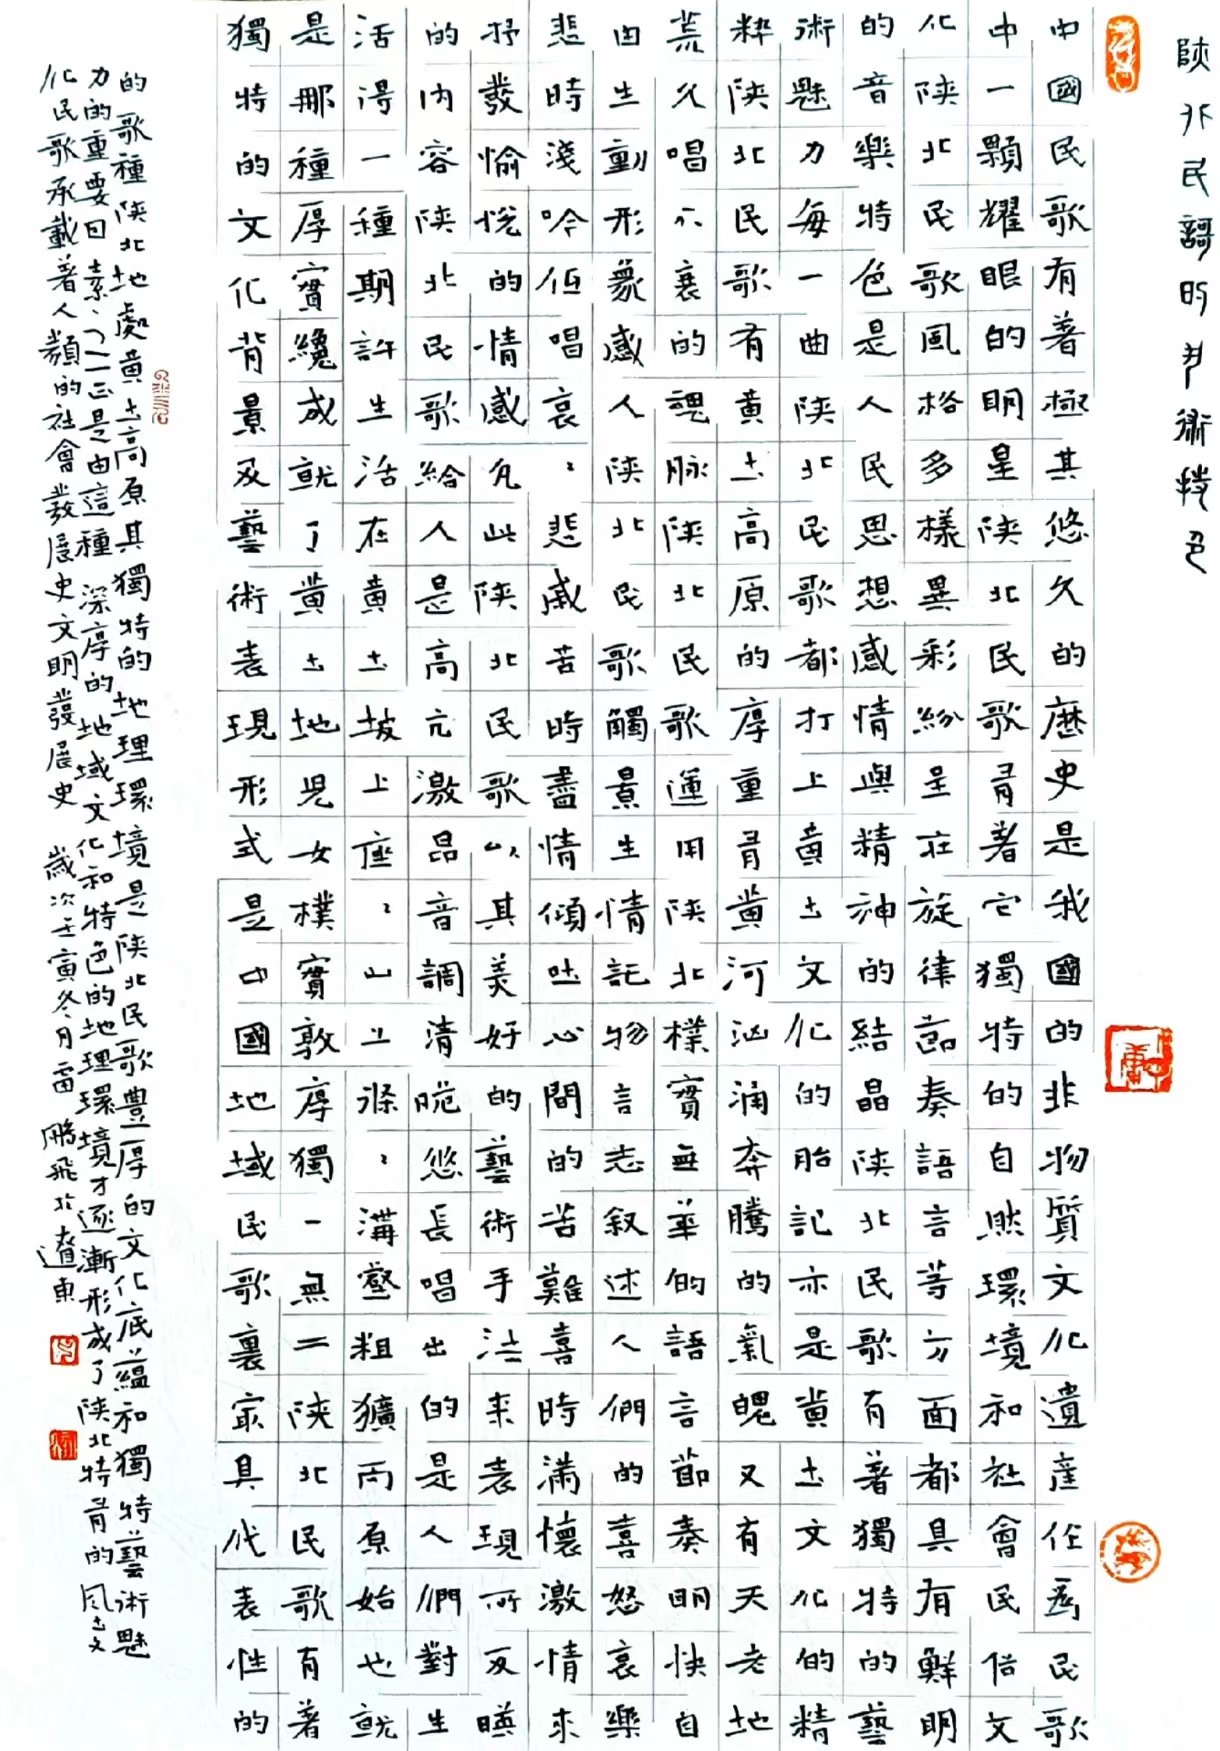 陝北民謌的藝術特色
中國民歌有著極其悠久的歷史是我國的非物質文化遺產作爲民歌
中一顆耀眼的明星陝北民歌有著它獨特的自然環境和社會民俗文
化陝北民歌風格多樣異彩紛呈在旋律節奏語言等方面都具有鮮明
的音樂特色是人民思想感情與精神的結晶陝北民歌有著獨特的藝
術魅力每一曲陝北民歌都打上黃土文化的胎記亦是黃土文化的精
粹陝北民歌有黃土高原的厚重有黃河洶涌奔騰的氣魄又有天老地
荒久唱不衰的魂脈陝北民歌運用陝北樸實無華的語言節奏明快自
由生動形象感人陝北民歌觸景生情託物言志叙述人們的喜怒哀樂
悲時淺吟低唱哀〻悲戚苦時盡情傾吐心間的苦難喜時滿懷激情來
抒發愉悅的情感凡此陝北民歌以其美好的藝術手法來表現所反映
的內容陝北民歌給人是高亢激昂音調清晰悠長唱出的是人們對生
活得一種期許生活在黃土坡上座〻山上條〻溝壑粗獷而原始也就
是那種厚實纔成就了黃土地兒女樸實敦厚獨一無二陝北民歌有著
獨特的文化背景及藝術表現形式是中國地域民歌裏最具代表性的
的歌種陝北地處黃土高原其獨特的地理環境是陝北民歌豐厚的文化底蘊和獨特藝術魅
力的重要因素正是由這種深厚的地域文化和特色的地理環境才逐漸形成了陝北特有的風土文
化民歌承載著人類的社會發展史文明發展史 歲次壬寅冬月雷鵬飛於遼東